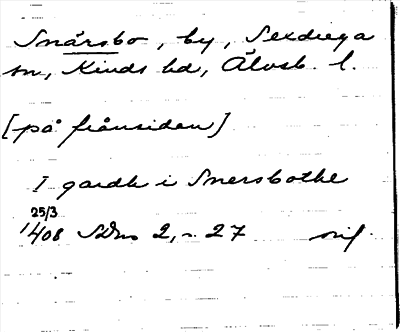 Snårsbo, by, Sexdrega
sn, Kinds hd, Älvsb. l.
[på frånsidan]
I gardh i Snersbothe
25/3
1408 SDns 2, s 27